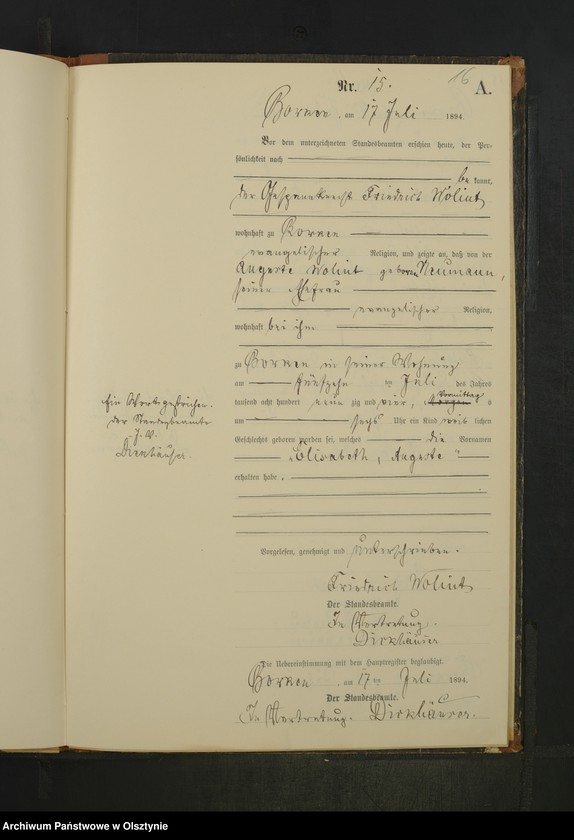 16
Nr. 15.
A.
Borken, am 17 Juli 1894.
Vor dem unterzeichneten Standesbeamten erschien heute, der Per-
sönlichkeit nach
be kannt,
der Gespannknecht Friedrich Wolint
wohnhaft zu Borken
evangelischer Religion, und zeigte an, daß von der
Auguste Wolint geboren Neumann,
seiner Ehefrau
evangelischer Religion,
wohnhaft bei ihm
zu Borken in seiner Wohnung
am fünfzehn ten Juli des Jahres
tausend acht hundert neun zig und vier, Vormittag s
um sechs Uhr ein Kind weib lichen
Geschlechts geboren worden sei, welches die Vornamen
"Elisabeth, Auguste"
erhalten habe.
Ein Wort gestrichen.
Der Standesbeamte
J. V.
Vorgelesen, genehmigt und unterschrieben.
Friedrich Wolint
Der Standesbeamte.
In Vertretung.
Die Uebereinstimmung mit dem Hauptregister beglaubigt.
Borken, am 17 ten Juli 1894.
Der Standesbeamte.
In Vertretung.
Archiwum Państwowe w Olsztynie